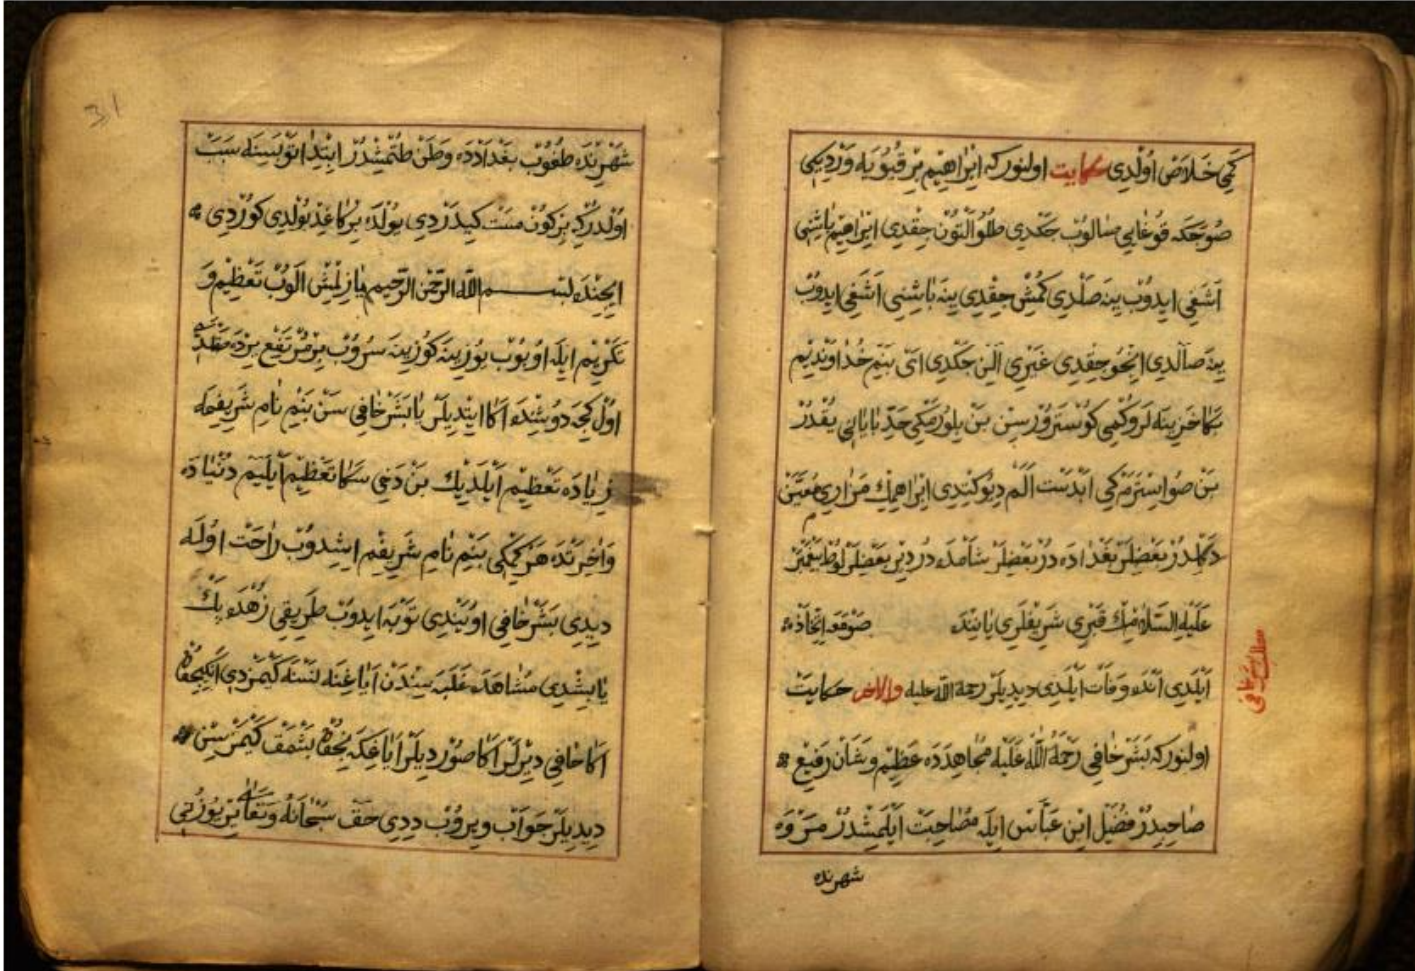 كمى خلاص اولدى حكايت اولنور كه ابراهيم بر قيويه وردىكى
صوجكه قوغايى صالوب جكدى طلو آلتون جقدى ابراهيم باشنى
اشغى ايدوب ينه صلدى كمش جقدى ينه باشنى اشغى ايدوب
ينه صالدى انجو جقدى غيرى الن جكدى اتى بنم خداونديم
بكا خزينه لروكمى كوسترورسن بن بلورمكى حد بايانى يقدر
بن صو استرمكى ابدست الم ديو كتدى ابراهيمك مزارى معين
دكلدر بعضلر بغداده در بعضلر شامده در دير بعضلر لوط بيغمبر
عليه السلامك قبرى شريفلرى يانده صوقعه اتخاذ
ايلدى آنده وفات ايلدى ديديلر رحمة الله عليه والاخر حكايت
اولنور كه بشر خافى رحمة الله عليه مجاهدده عظيم وشان رفيع
صاحبدر فضيل ابن عباس ايله مصاحبت ايلمشدر مروه
شهرنده
31
شهرنده طغوب بغداده وطن طتمشدر ابتدا توبسينه سبب
اولدركه بر كون مست كيدردى يولده بر كاغذ بولدى كوردى
ايجنده بسم الله الرحمن الرحيم يازلمش الوب تعظيم و
تكريم ايله اوبوب يوزينه كوزينه سروب بر مرتفع يرده
اول كيجه دوشنده اكا ايتديلر يا بشر خافى سن بنم نام شريفمه
زياده تعظيم ايلديك بن دخى سكا تعظيم ايليم دنياده
واخرتده هر كمكى بنم نام شريفم اشدوب راحت اوله
ديدى بشر خافى اويندى توبه ايدوب طريقى زهده بك
يابشدى مشاهده غلبه سيندن اياغنه نسنه كيمزدى
اكا خافى ديرلر اكا صورديلر اياغكه يجون بشمق كيمزسن
ديديلر جواب ويروب ددى حق سبحانه وتعالى ير يوزنى